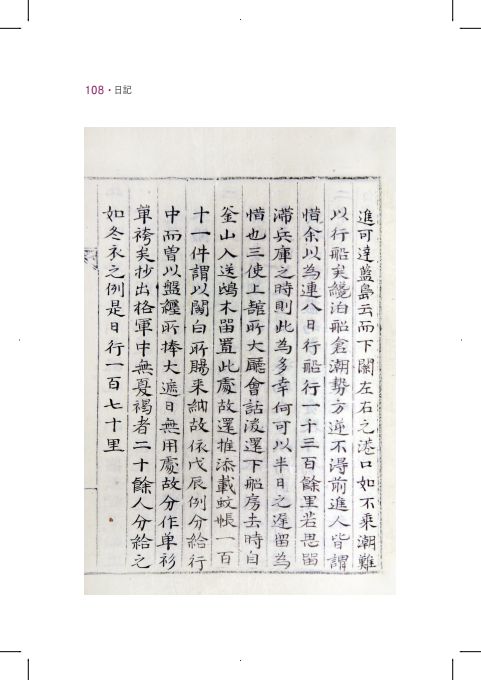 108 · 日記
進可達藍島云而下關左右之港口如不乘潮難
以行船矣纔泊船倉潮勢方逆不得前進人皆謂
惜余以為連八日行船行一千三百餘里若思留
滯兵庫之時則此為多幸何可以半日之遲留為
惜也三使上館所大廳會話後還下船房去時自
釜山入送鴟木留置此處故還推添載蚊帳一百
十一件謂以關白所賜來納故依戊辰例分給行
中而曾以盤纏所捧大遮日無用處故分作单衫
單袴矣抄出格軍中無夏褐者二十餘人分給之
如冬衣之例是日行一百七十里